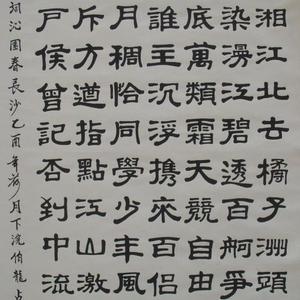 湘江北去橘子洲頭
染漫江碧透百舸爭
底萬類霜天競自由
誰主沉浮携來百侣
月稠恰同學少年風
斥方遒指點江山激
戶侯曾記否到中流
詞沁園春長沙乙酉年荷月下浣伯龍